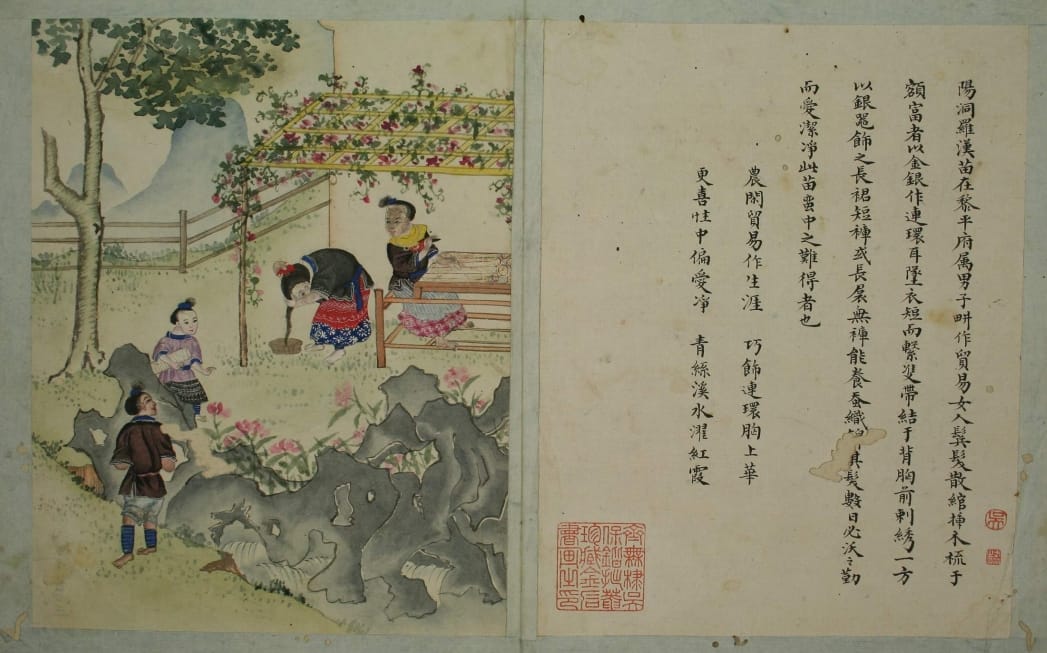 陽洞羅漢苗在黎平府属男子畊作貿易女人鬓髮散綰揷木梳于
額富者以金銀作連環耳墜衣短而繫雙帶結于背胸前刺綉一方
以銀噐飾之長裙短褲或長裠無褲能養蚕織其髮數日必沃之勤
而愛潔凈此苗蛮中之難得者也
農閑貿易作生涯 巧飾連環胸上華
更喜性中偏愛凈 青絲溪水濯紅霞
齊無棣吳
珍藏金石
書画之印